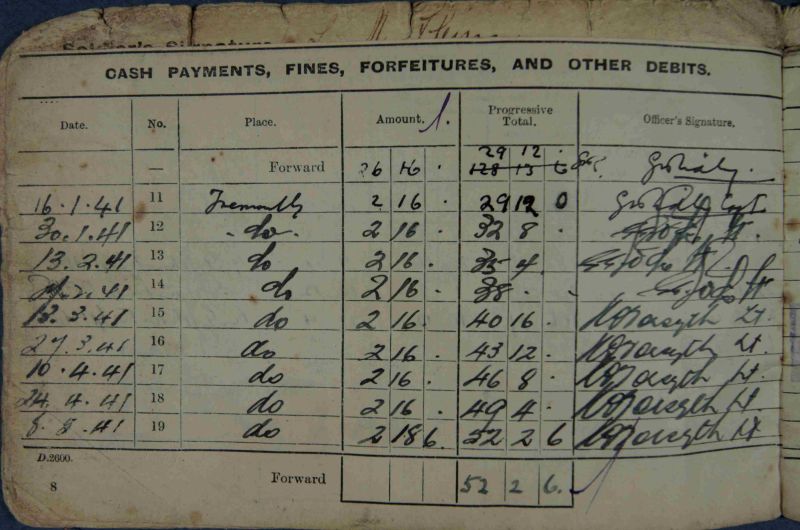 Soldier's Signature
CASH PAYMENTS, FINES, FORFEITURES, AND OTHER DEBITS.
Date. No. Place. Amount. Progressive Total. Officer's Signature.
29 12 .
— Forward 26 16 . 128 13 6
16.1.41 11 2 16 . 29 12 0
30.1.41 12 do 2 16 . 32 8 .
13.2.41 13 do 2 16 . 35 4 .
41 14 do 2 16 . 38 . .
13.3.41 15 do 2 16 . 40 16 . Forsyth Lt.
27.3.41 16 do 2 16 . 43 12 . Forsyth Lt.
10.4.41 17 do 2 16 . 46 8 . Forsyth Lt.
24.4.41 18 do 2 16 . 49 4 . Forsyth Lt.
41 19 do 2 18 6. 52 2 6 Forsyth Lt
D.2600.
8 Forward 52 2 6.